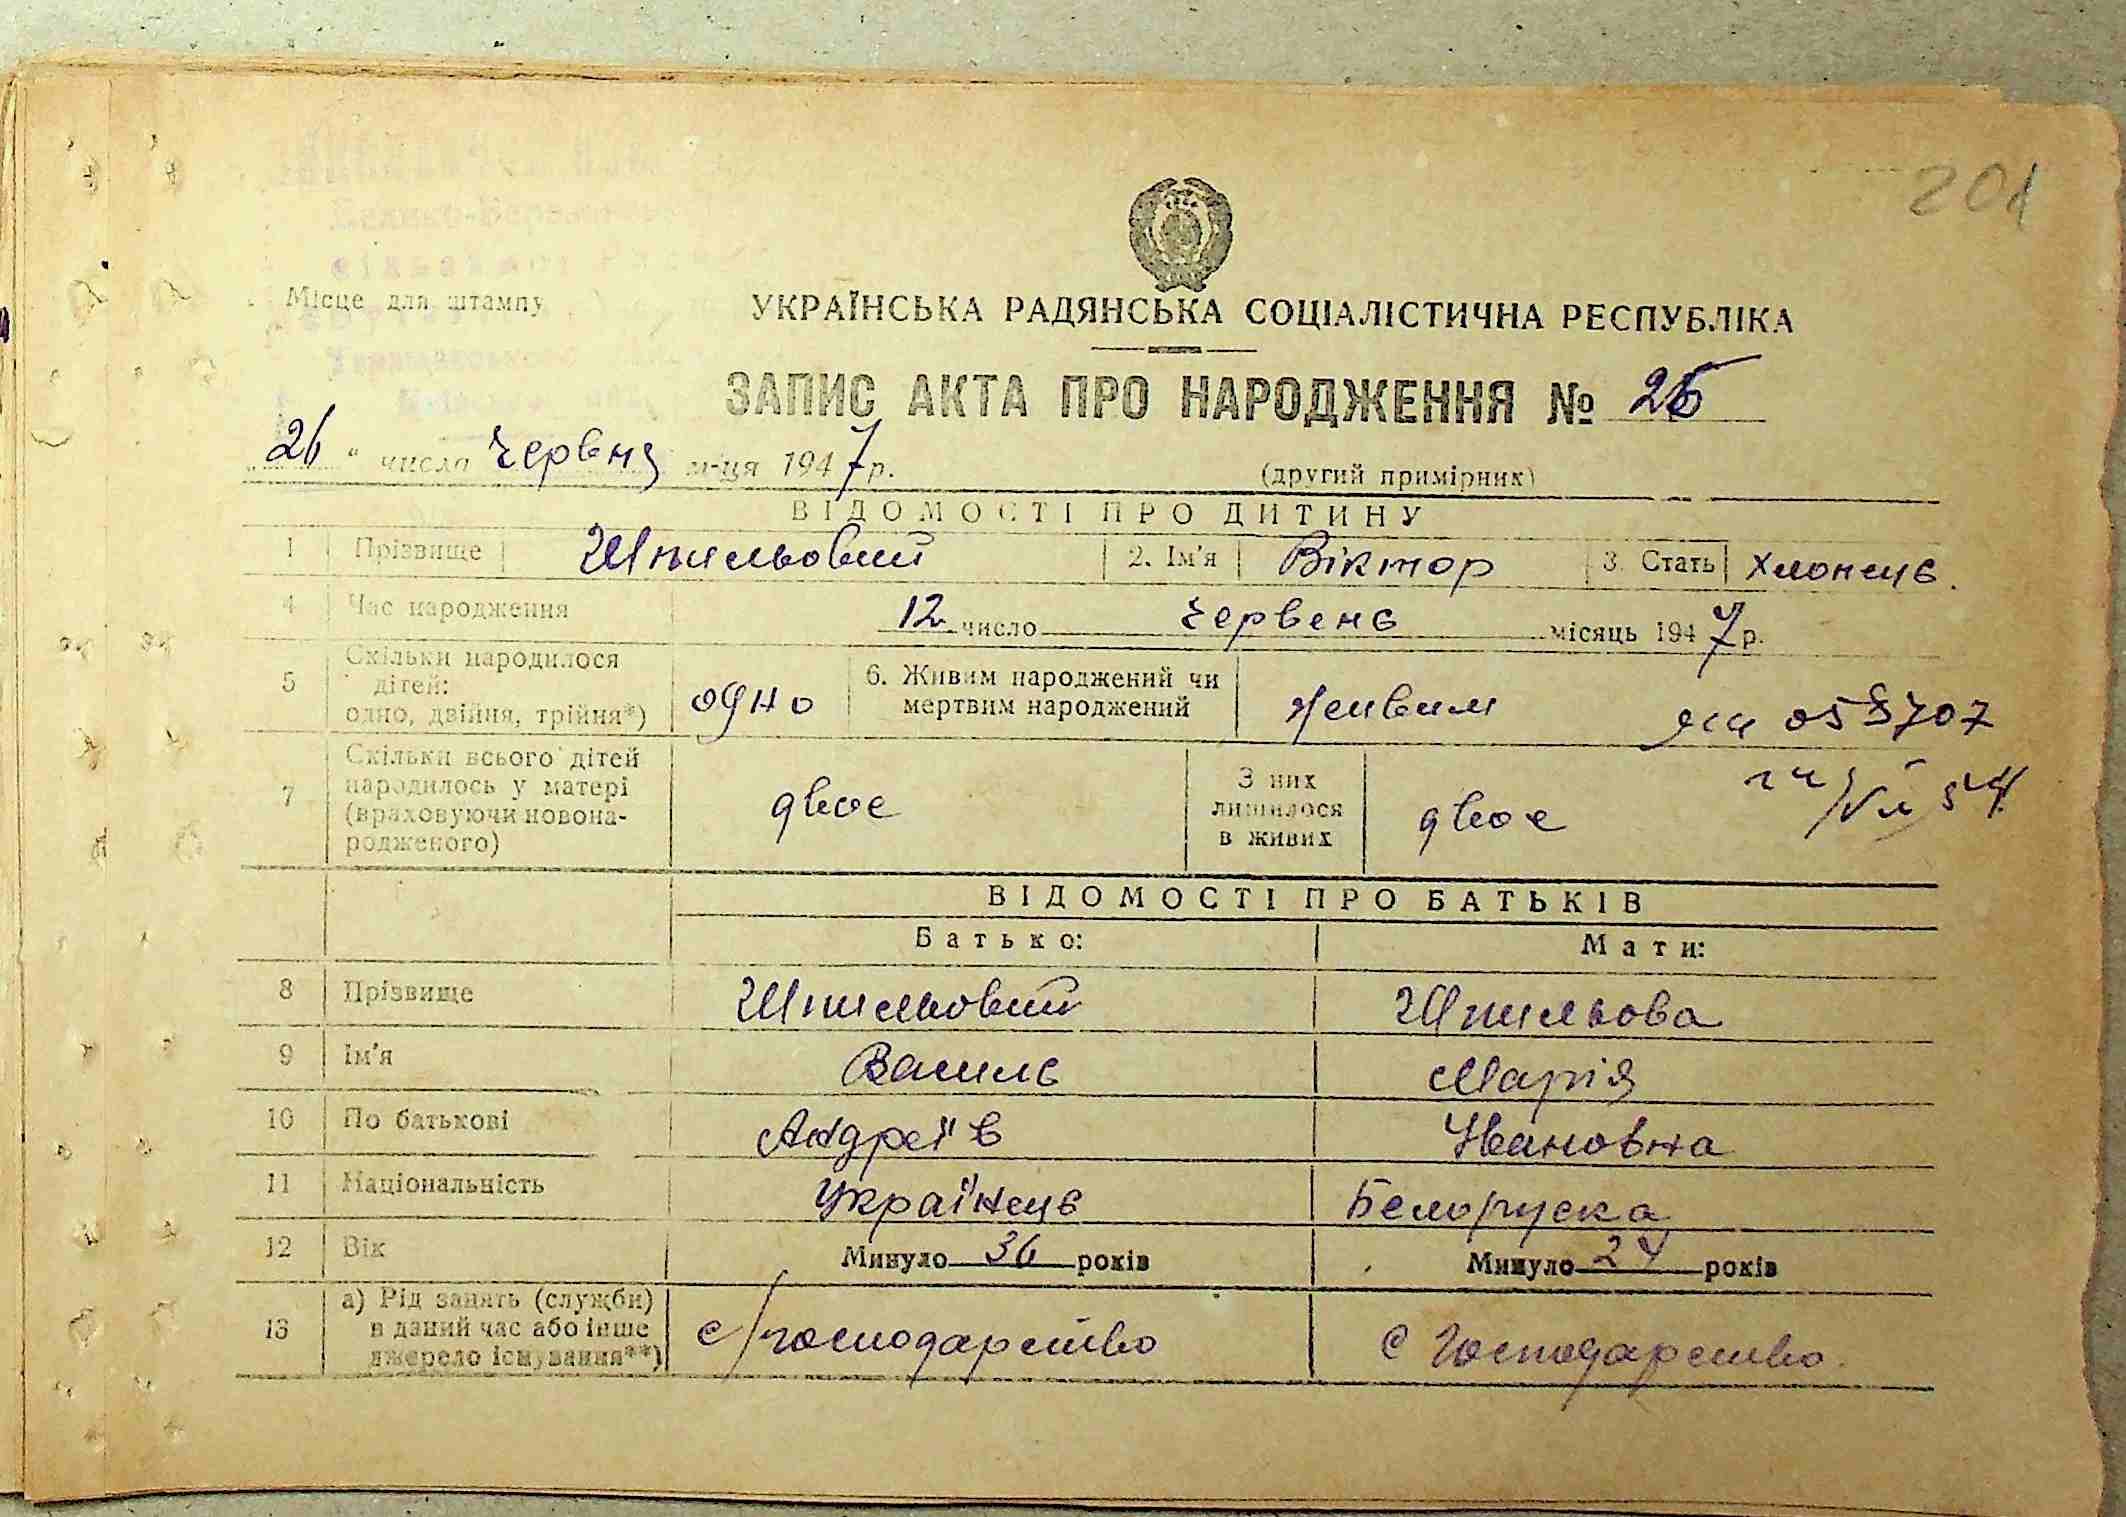 201
Місце для штампу
УКРАЇНСЬКА РАДЯНСЬКА СОЦІАЛІСТИЧНА РЕСПУБЛІКА
ЗАПИС АКТА ПРО НАРОДЖЕННЯ №
„26“ числа червня м-ця 1947 р.
(другий примірник)
ВІДОМОСТІ ПРО ДИТИНУ
1 Прізвище Шпильовий 2. Ім'я Віктор 3. Стать Хлопець.
4 Час народження 12 число червень місяць 1947 р.
5 Скільки народилося дітей: одно, двійня, трійня*) одно 6. Живим народжений чи мертвим народжений живим
7 Скільки всього дітей народилось у матері (враховуючи новонародженого) двоє З них лишилося в живих двоє
ВІДОМОСТІ ПРО БАТЬКІВ
Батько: Мати:
8 Прізвище Шпильовий Шпильова
9 Ім'я Василь Марія
10 По батькові Андреїв Івановна
11 Національність Українець Белоруска
12 Вік Минуло 36 років Минуло 24 років
13 а) Рід занять (служби) в даний час або інше джерело існування**) с/господарство с господарство.